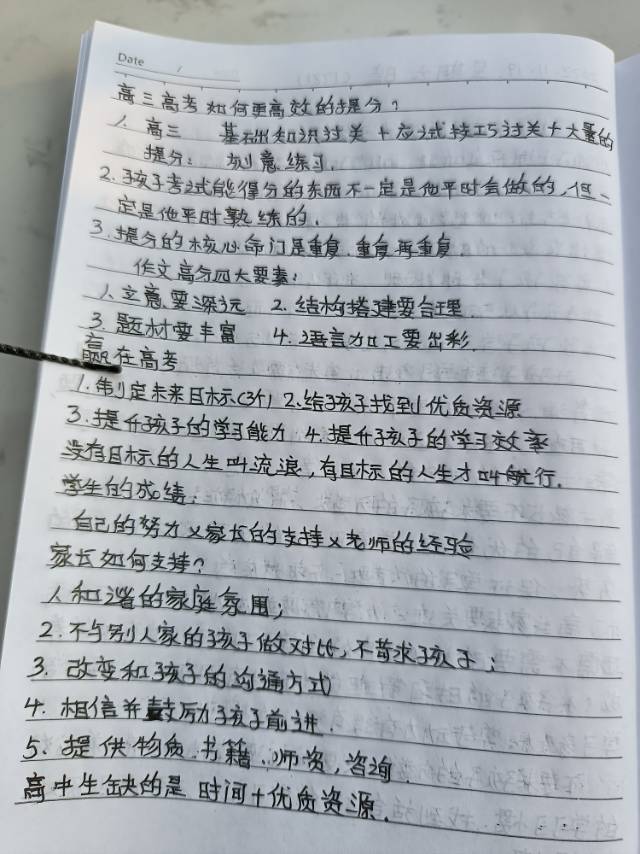 Date
高三高考如何更高效的提分?
1. 高三 基础知识过关+应试技巧过关+大量的
提分: 刻意练习.
2. 孩子考试能得分的东西不一定是他平时会做的,但一
定是他平时熟练的.
3. 提分的核心命门是重复.重复再重复.
作文高分四大要素:
1. 立意要深远 2. 结构搭建要合理.
3. 题材要丰富 4. 语言加工要出彩.
赢在高考
1. 制定未来目标(3个) 2. 给孩子找到优质资源
3. 提升孩子的学习能力 4. 提升孩子的学习效率
没有目标的人生叫流浪,有目标的人生才叫航行.
学生的成绩:
自己的努力x家长的支持x老师的经验
家长如何支持?
1. 和谐的家庭氛围;
2. 不与别人家的孩子做对比,不苛求孩子;
3. 改变和孩子的沟通方式
4. 相信并鼓励孩子前进.
5. 提供物质.书籍.师资,咨询.
高中生缺的是 时间+优质资源.